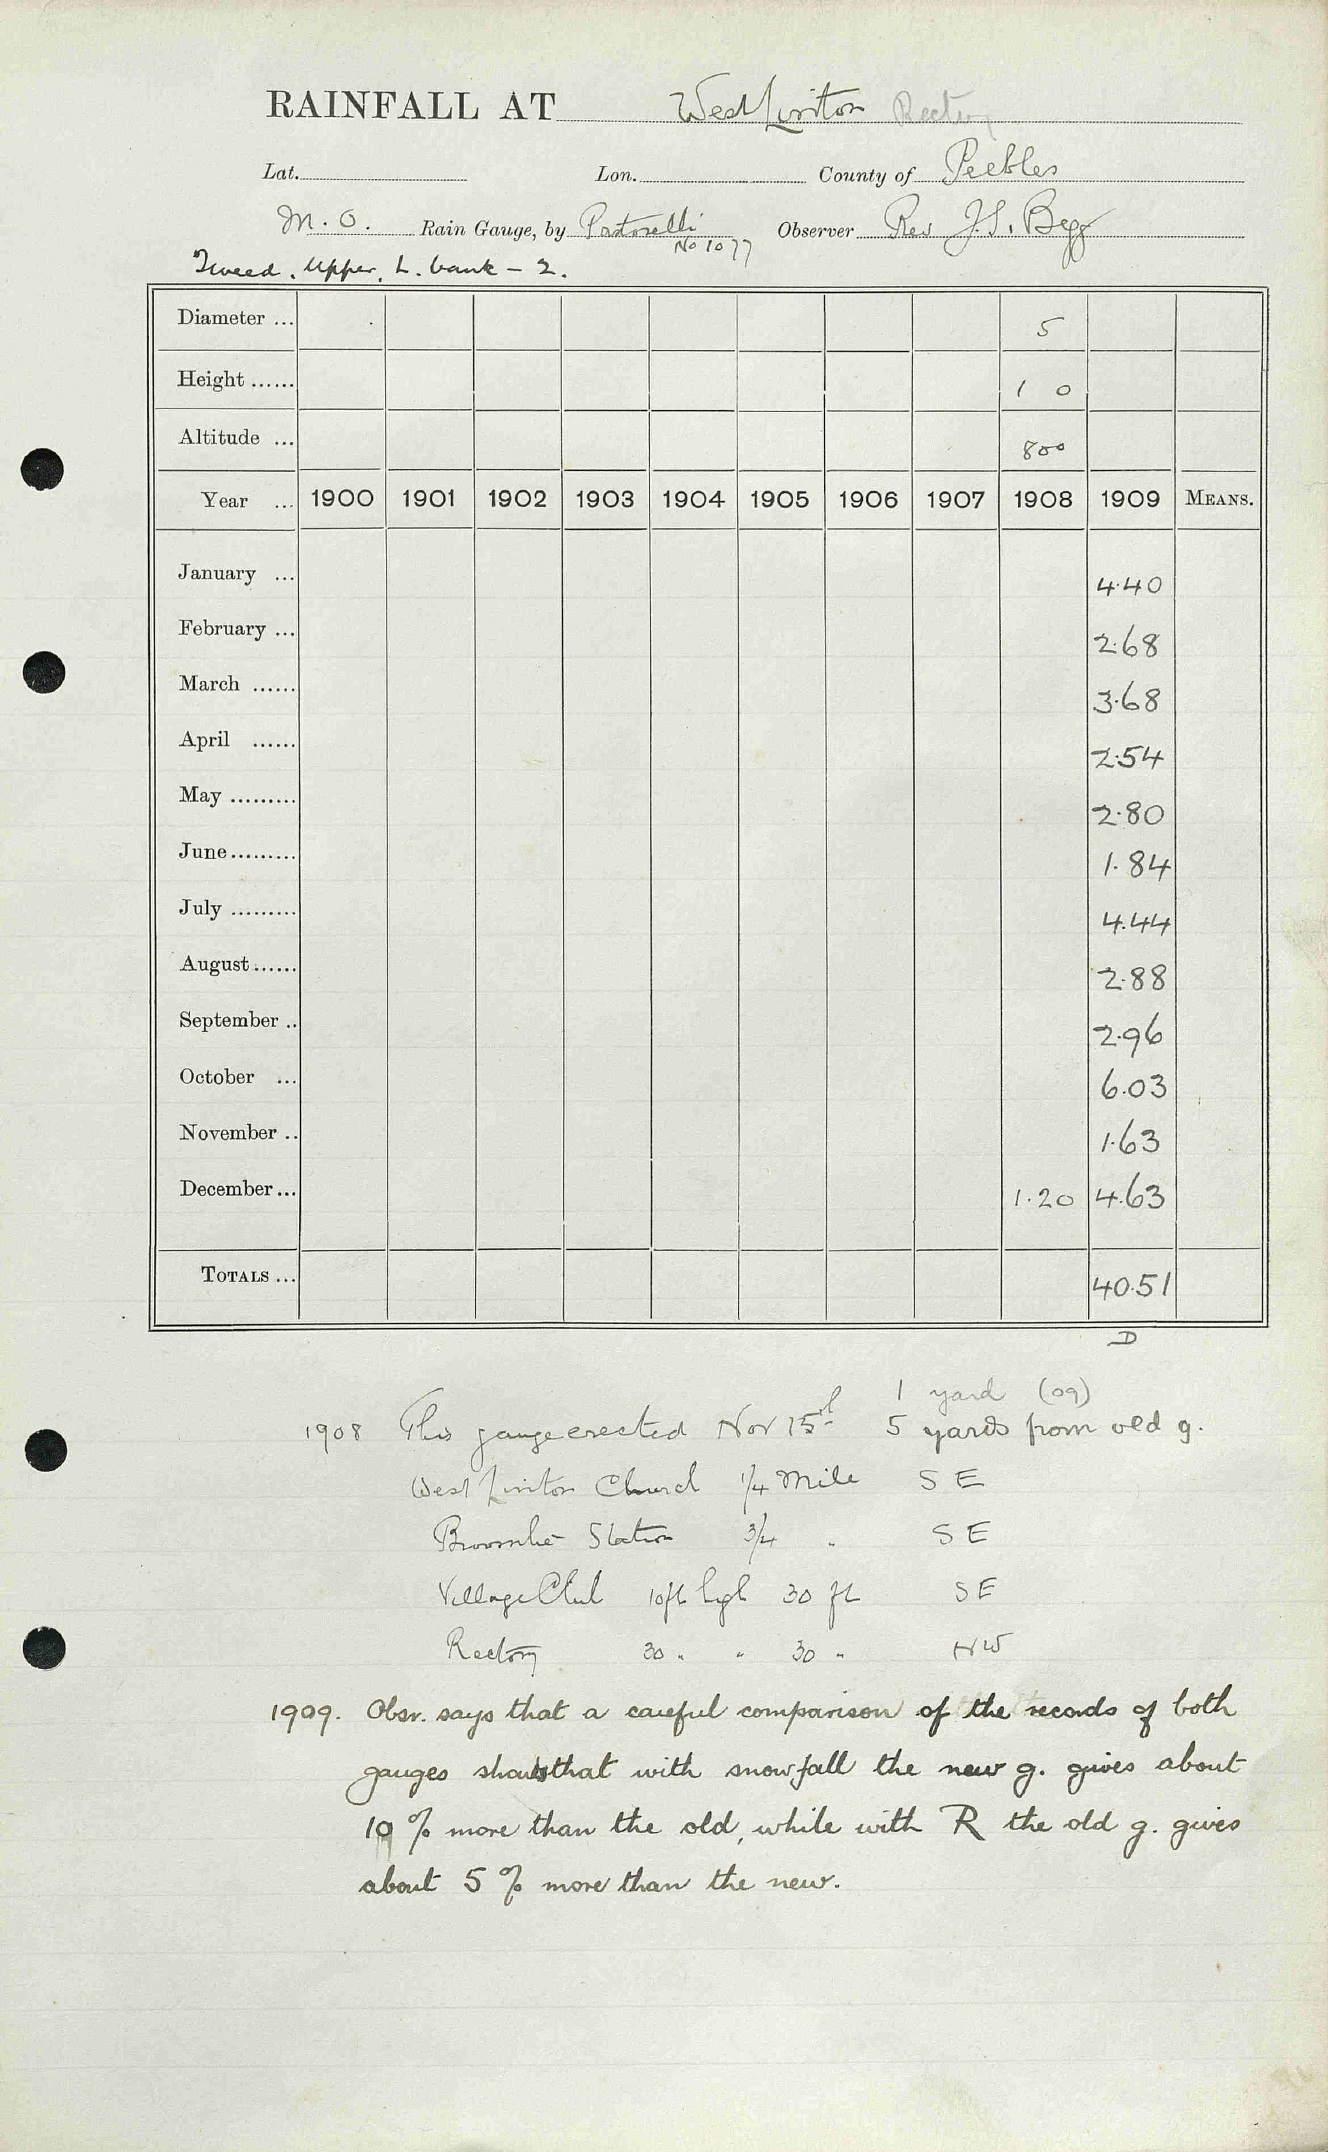 RAINFALL AT West Linton Rectory
Lat. Lon. County of Peebles
M.O. Rain Gauge, by Pastorelli Observer Rev J.S. Begg
No 1077
Tweed. Upper, L. bank - 2.
Diameter ... 5
Height ...... 1 0
Altitude ... 800
Year ... 1900 1901 1902 1903 1904 1905 1906 1907 1908 1909 MEANS.
January ... 4.40
February ... 2.68
March ...... 3.68
April ...... 2.54
May ......... 2.80
June......... 1.84
July ......... 4.44
August...... 2.88
September .. 2.96
October ... 6.03
November .. 1.63
December... 1.20 4.63
TOTALS ... 40.51
D
1 yard (09)
1908 This gauge erected Nov 15th 5 yards from old g.
West Linton Church 1/4 Mile S E
Station 3/4 " S E
Village Club 10ft high 30 ft S E
Rectory 30 " " 30 " NW
1909. Obsr. says that a careful comparison of the records of both
gauges shows that with snowfall the new g. gives about
10 % more than the old, while with R the old g. gives
about 5 % more than the new.